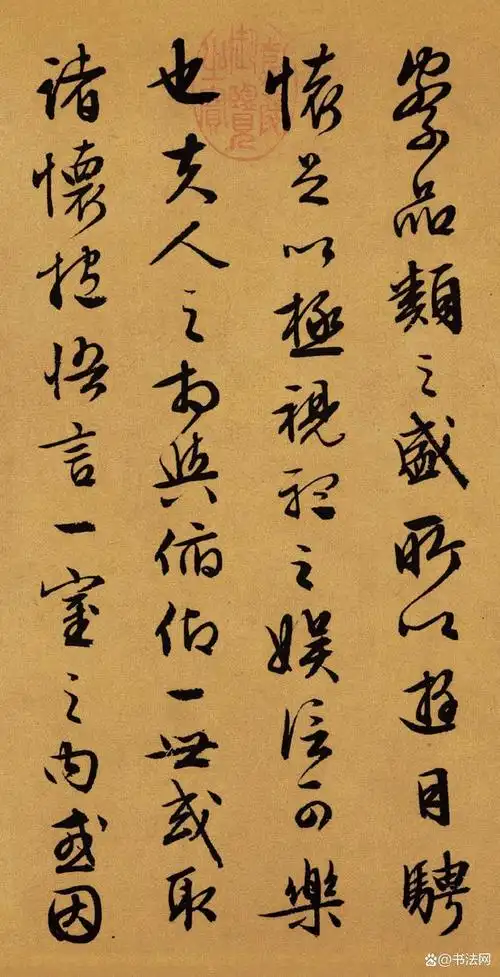 察品類之盛所以遊目騁
懷足以極視聽之娱信可樂
也夫人之相與俯仰一世或取
諸懷抱悟言一室之内或因
@书法网